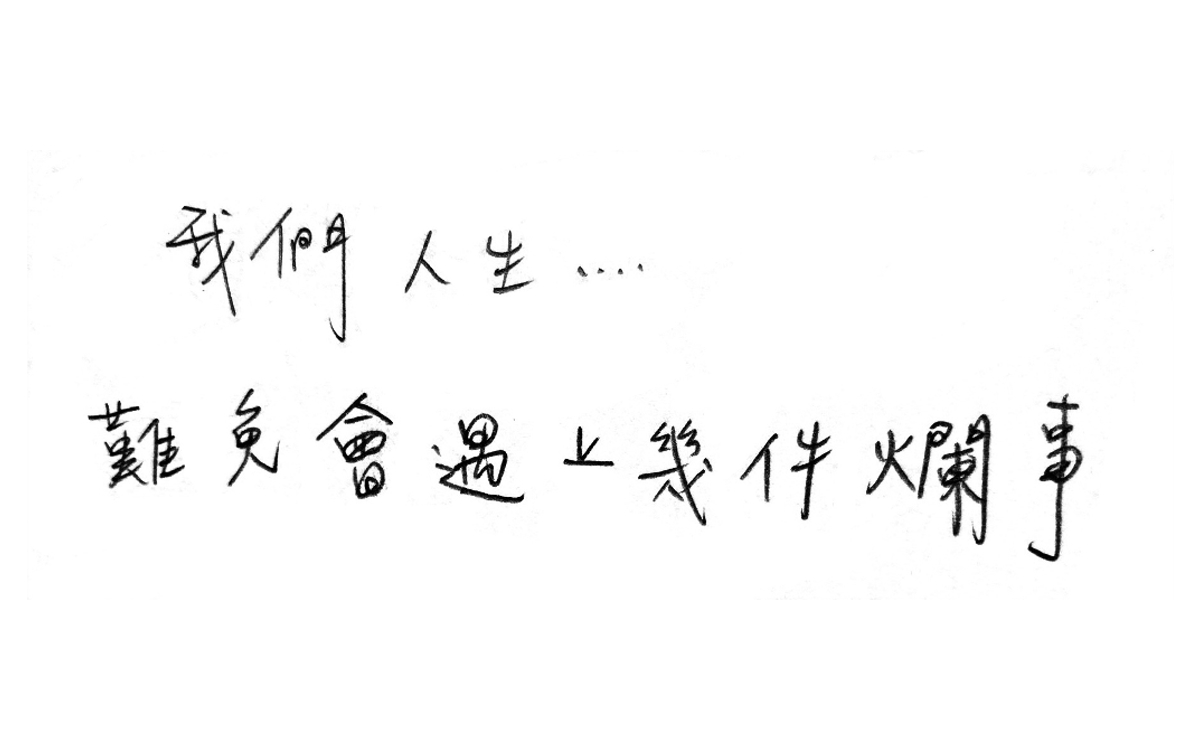 我們人生....
難免會遇上幾件爛事